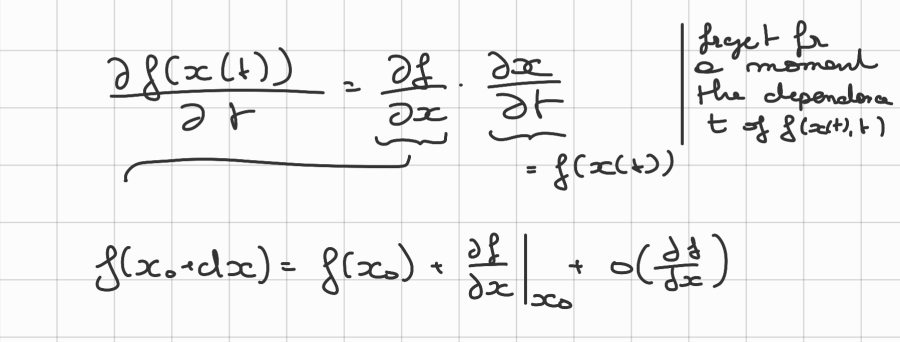 ∂f(x(t))/∂t = ∂f/∂x · ∂x/∂t
= f(x(t))
forget for
a moment
the dependence
t of f(x(t), t)
f(x₀+dx) = f(x₀) + ∂f/∂x|ₓ₀ + o(∂f/∂x)